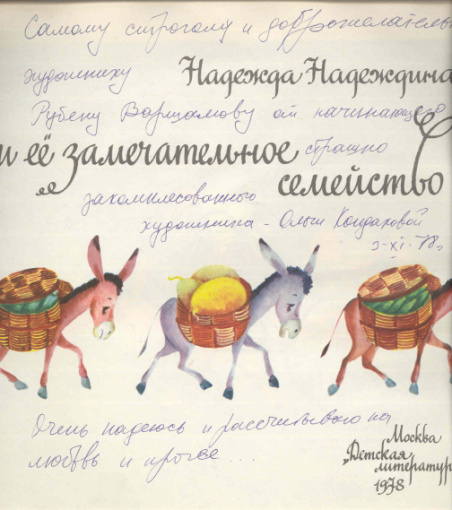 Самому строгому и доброжелатель
художнику
Надежда Надеждина
Рубену Варшамову от начинающего
и её замечательное
страшно
семейство
закомплесованного
художника - Ольги Кондаковой
3-XI-78г
Очень надеюсь и рассчитываю на
любовь и прочее...
Москва
„Детская
литератур
1978